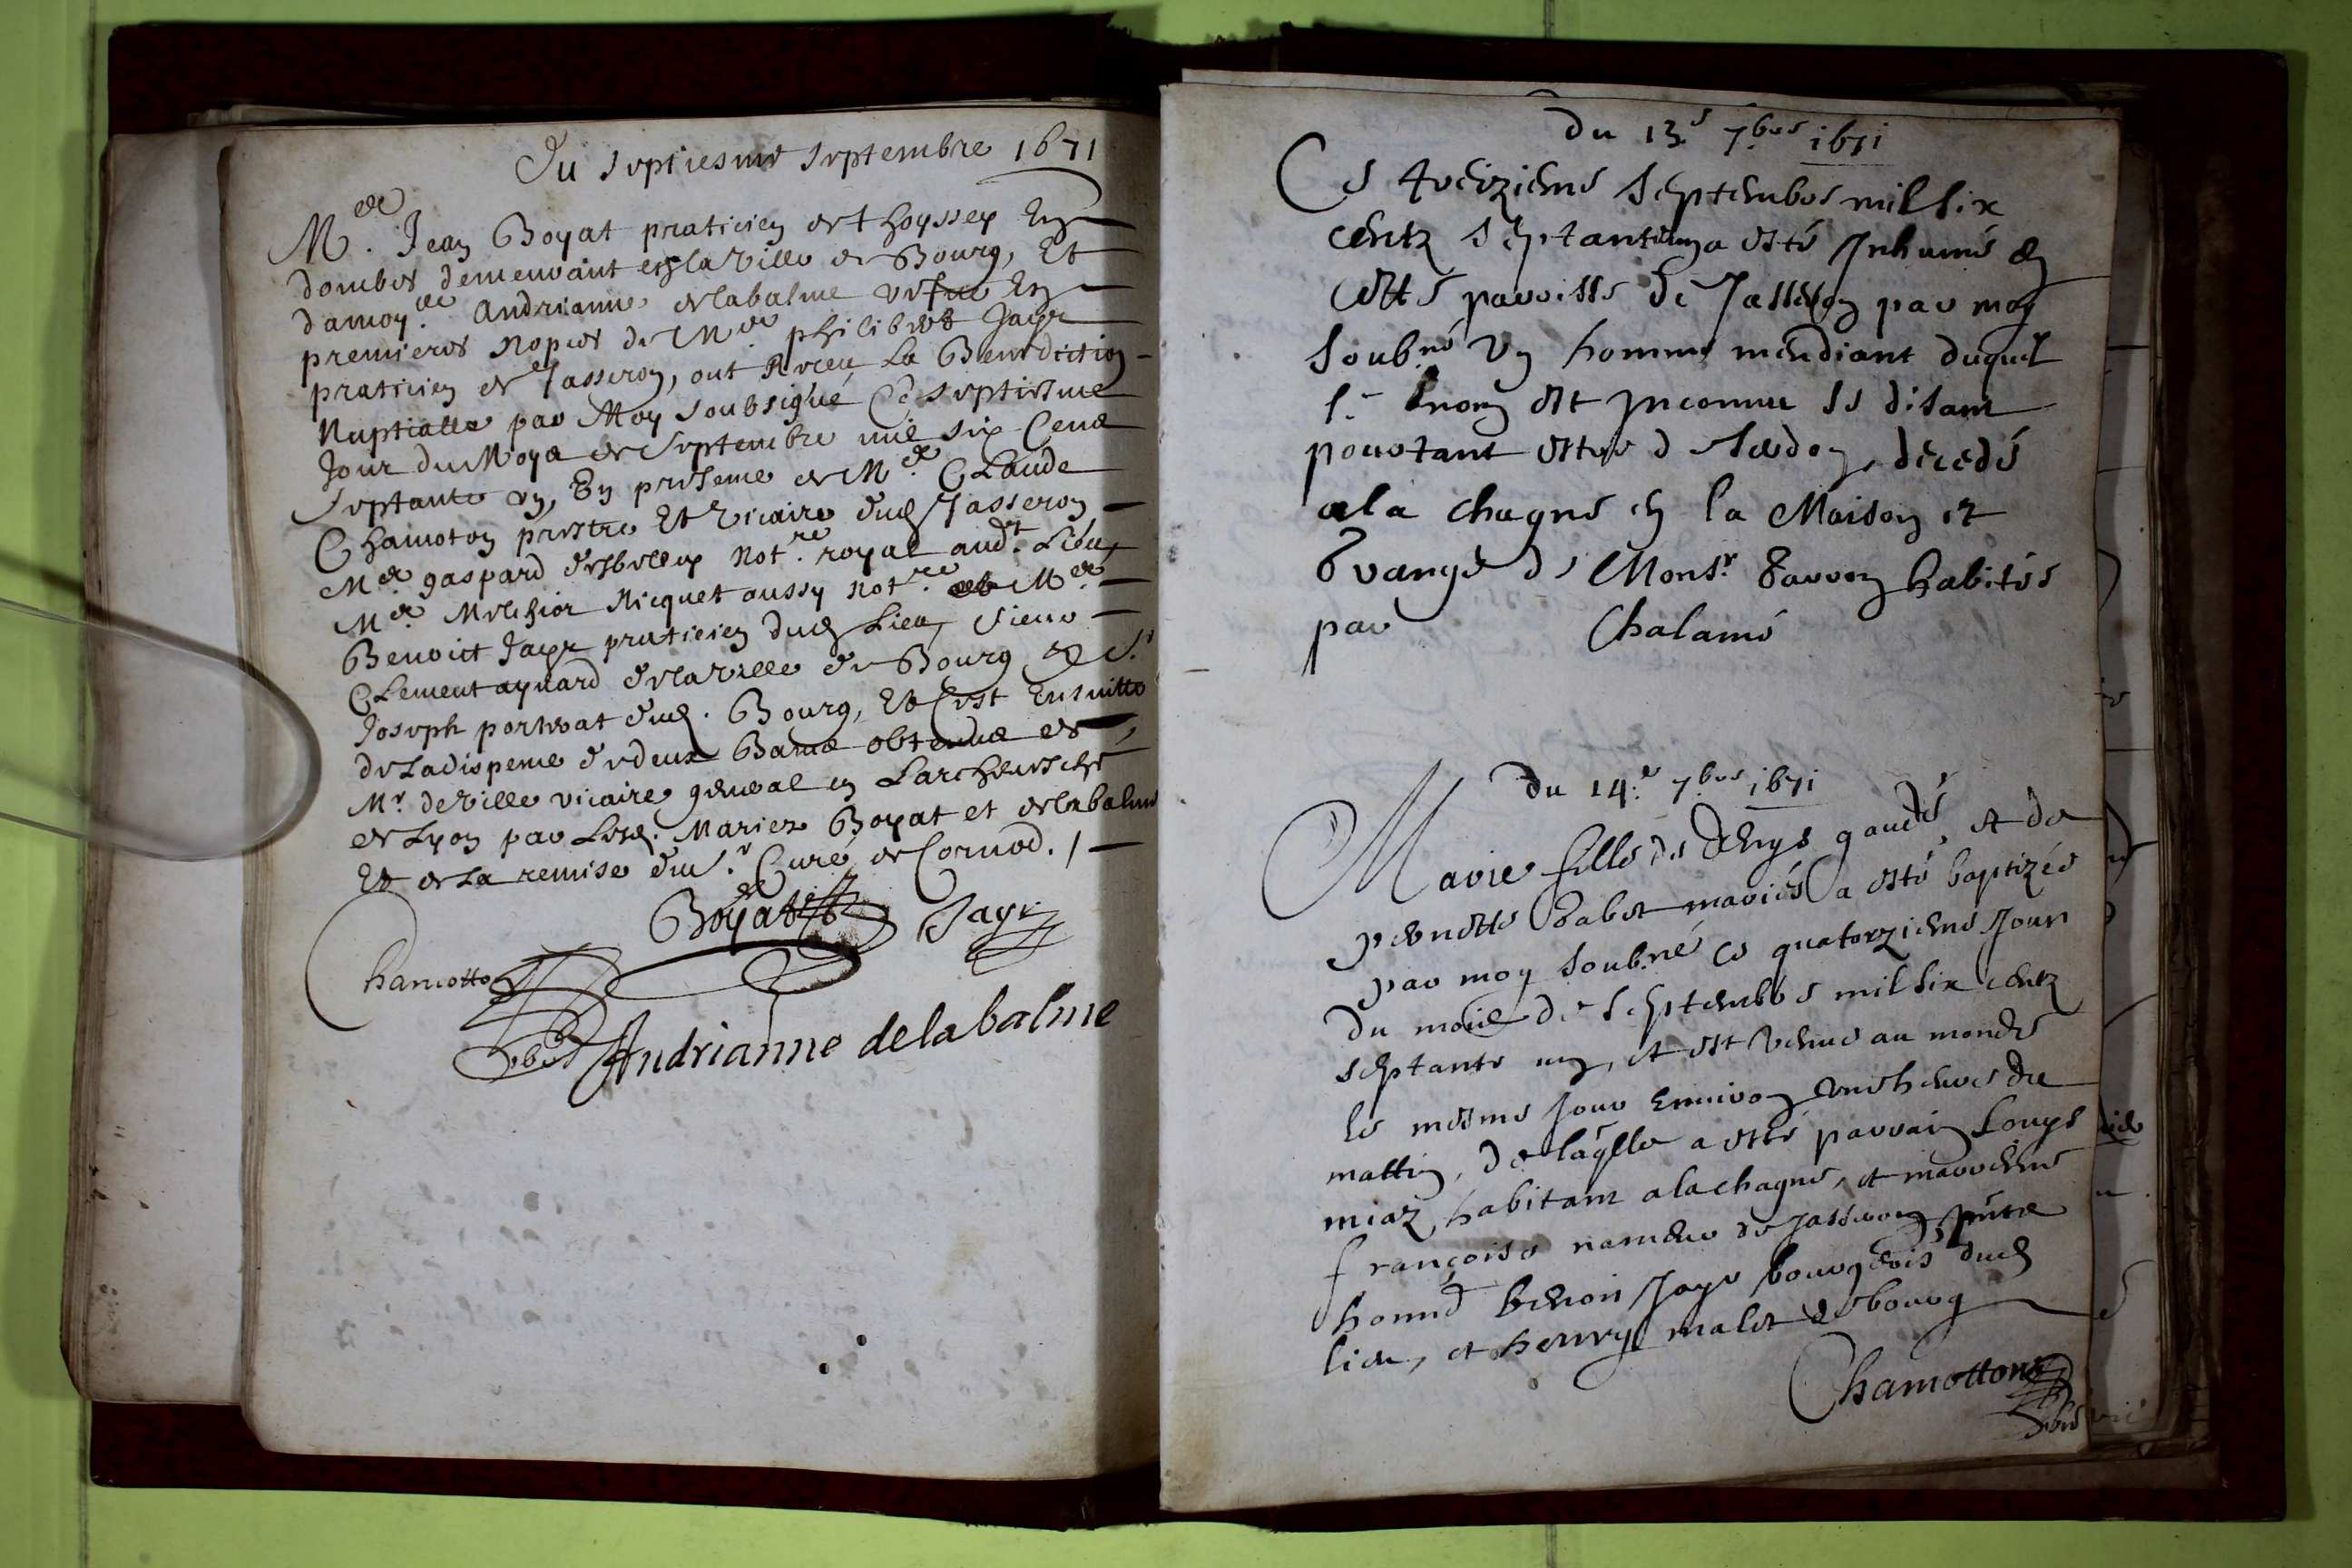 Du septiesme septembre 1671
Me. Jean Boyat praticien de thoyssey En
dombes demeurant en la ville de Bourg, Et
damoylle Andrianne de labalme vefve En
premieres nopces de Me philibert Jayr
praticien de Jasseron, ont Receu La Benediction
Nuptialle par Moy soubsigné Ce septiesme
Jour du Moys de Septembre mil six Cens
Septante un, En presence de Me. Claude
Chamoton prestre Et vicaire dud Jasseron
Me gaspard not.re royal aud.t Lieu,
Me Melchior Nicquet aussy not.re Me
Benoict Jayr praticien dud Lieu, sieur
Clement aynard de la ville de Bourg, & Sr
Joseph dud. Bourg, Et C'est Ensuitte
de La dispence de deux Bancs obtenue de
Mr. deville vicaire general en L'archevesché
de Lyon par Lesd. Mariez Boyat et de labalme
Et de la remise du Sr. Curé de Cornod. /
Boyat Jayr
Chamotton
Andrianne de la balme
du 13.e 7.bre 1671
Ce treizieme septembre mil six
centz septante un a esté Inhumé en
cette parroisse de Jasseron par moy
soub.né un homme mendiant duquel
le nom est Inconnu se disant
pourtant estre de decedé
a la chagne en la Maison et
grange de Monsr. habitée
par Chalamé
du 14.e 7.bre 1671
Marie fille de denys et de
pernette mariés a esté baptizée
par moy soub.né ce quatorzieme Jour
du mois de septembre mil six centz
septante un, et est venue au monde
le mesme Jour environ une heure du
mattin, de laqlle a esté parrain Louys
miaz habitant a la chagne, et marreine
françoise de Jasseron pnts
honnê benoit Jayr bourgeois dud
lieu, et henry malet de bourg
Chamotton